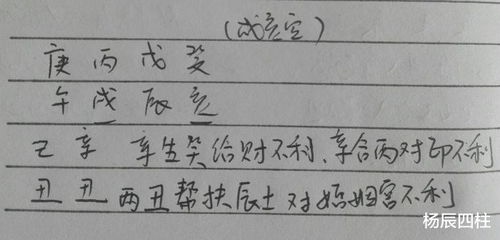 (戌亥空)
庚 丙 戊 癸
午 戌 辰 亥
己 辛 辛生癸给财不利、辛合丙对印不利
丑 丑 两丑帮扶辰土 对婚姻宫不利
杨辰四柱